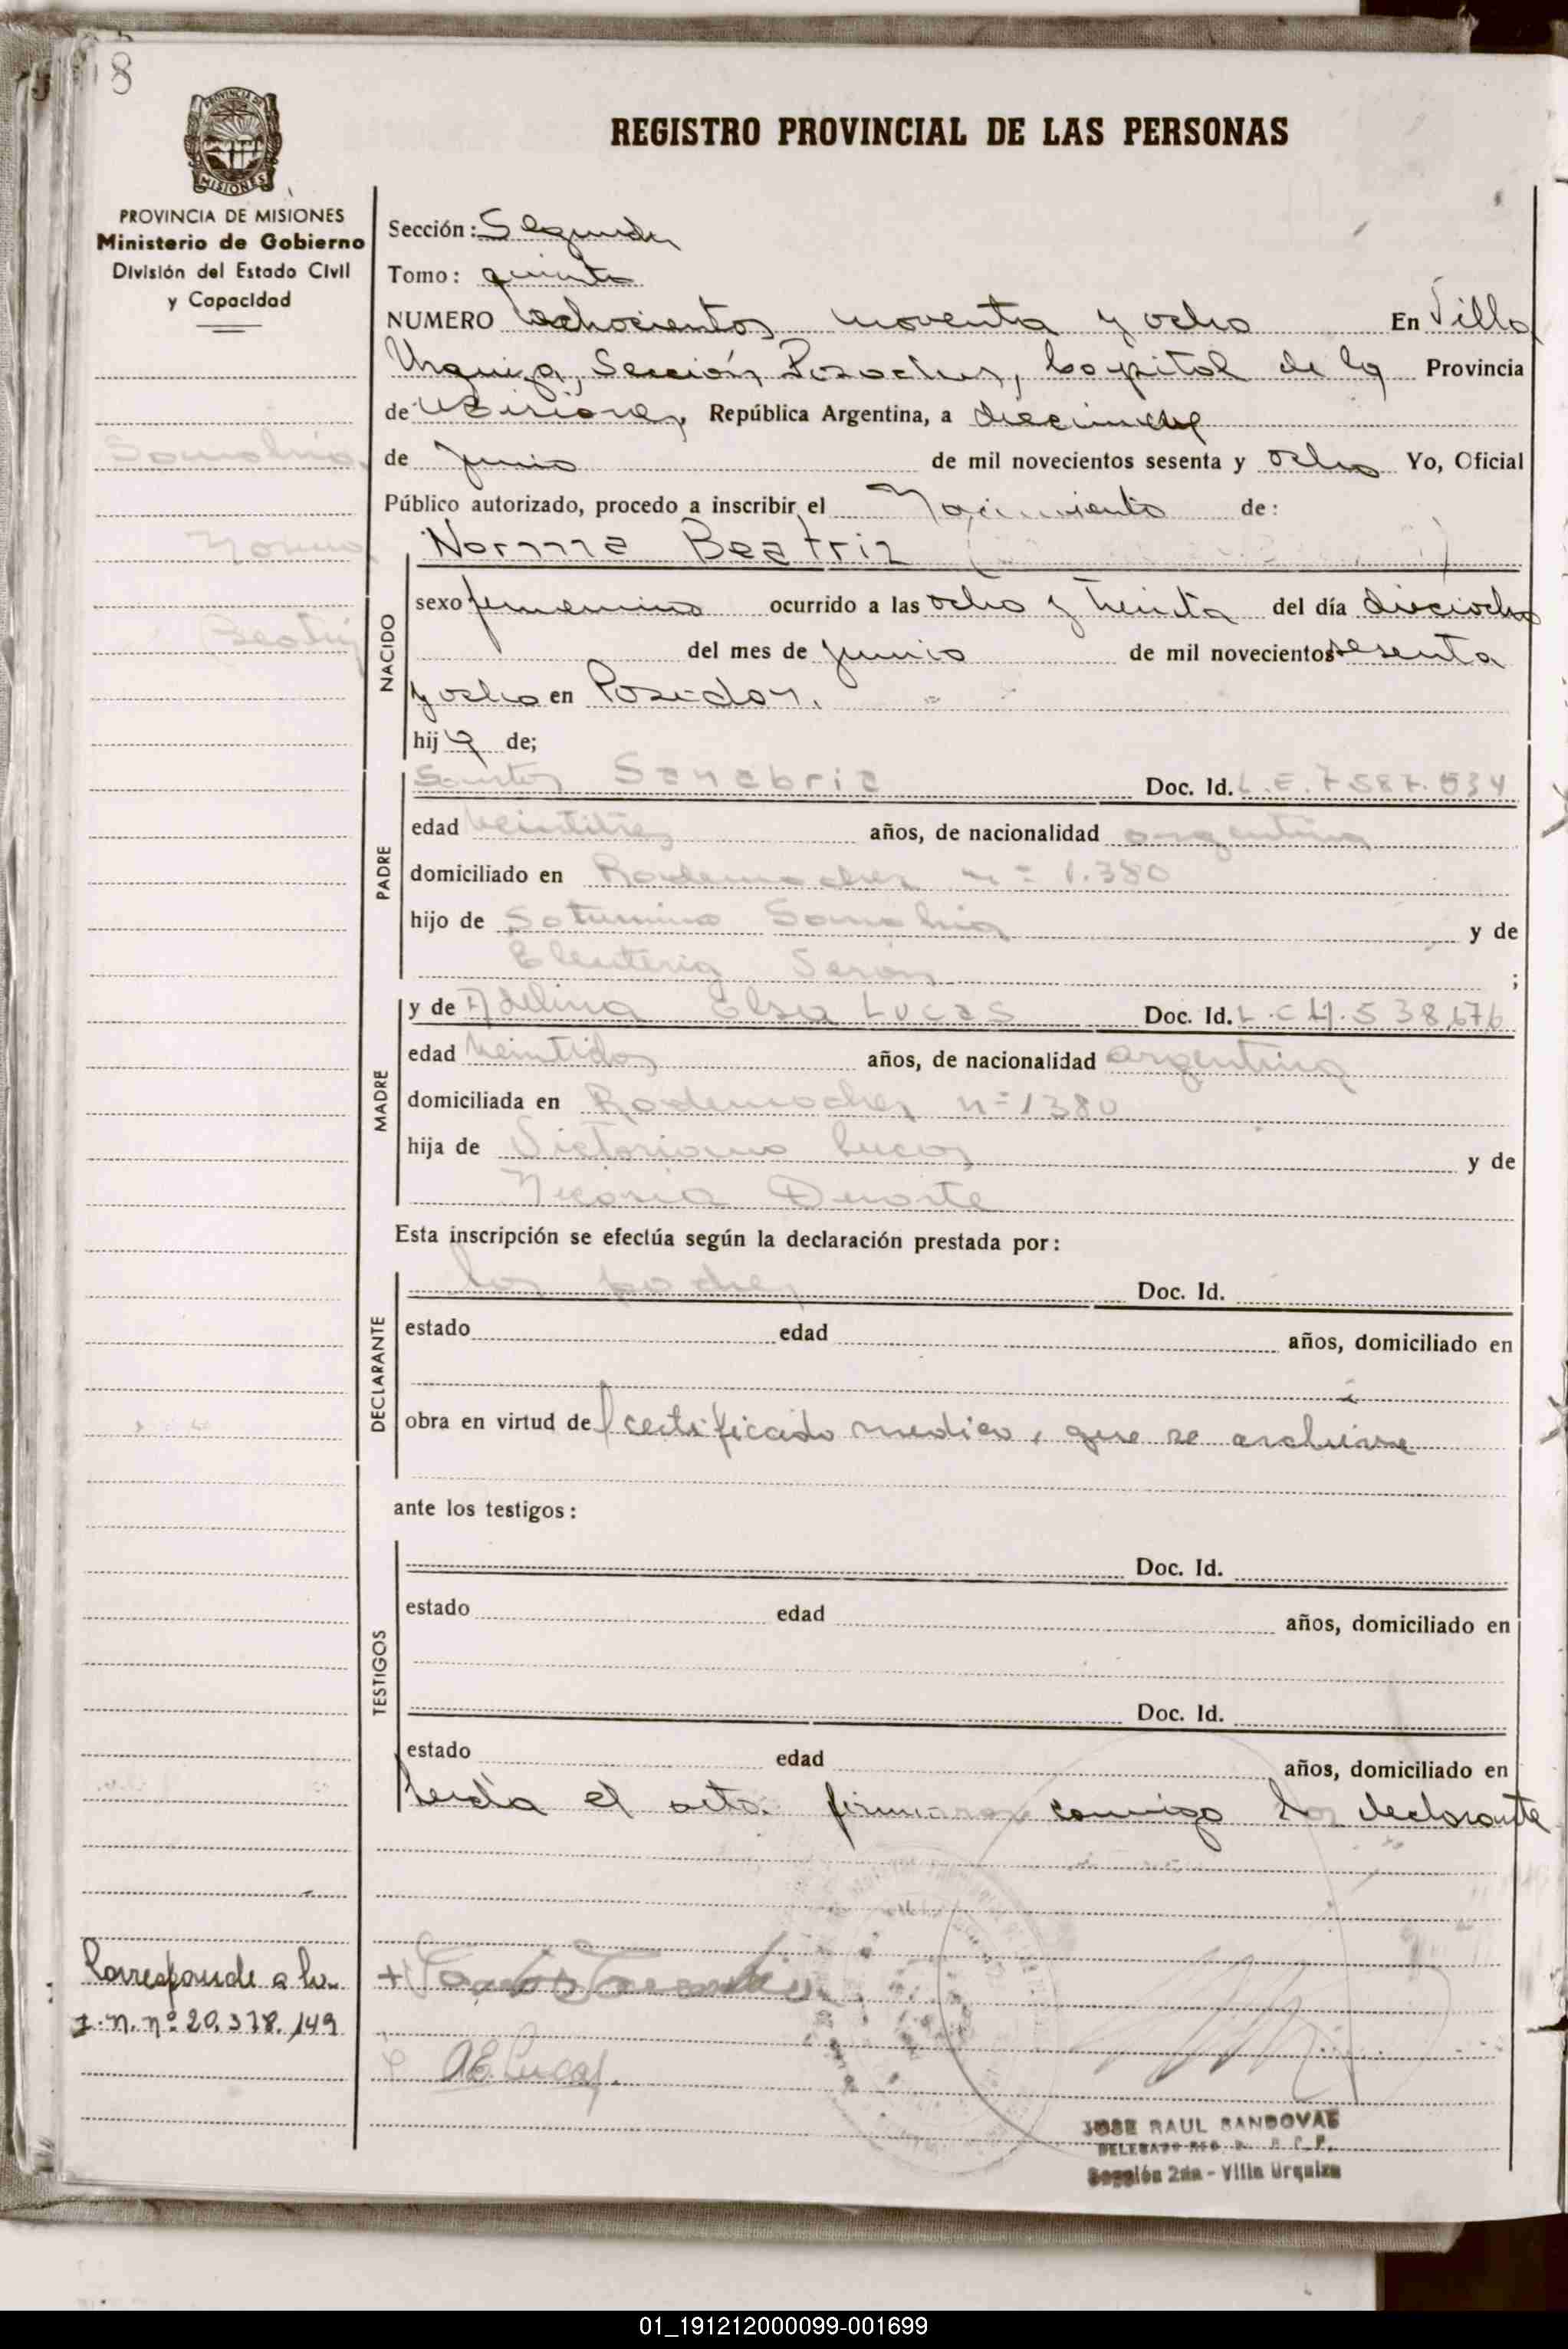 8
PROVINCIA DE
MISIONES
REGISTRO PROVINCIAL DE LAS PERSONAS
PROVINCIA DE MISIONES
Ministerio de Gobierno
División del Estado Civil
y Capacidad
Sección: Segunda
Tomo: quinto
NUMERO ochocientos noventa y ocho En Villa
Urquiza, Sección Posadas, Capital de la Provincia
de Misiones, República Argentina, a diecinueve
de Junio de mil novecientos sesenta y ocho Yo, Oficial
Público autorizado, procedo a inscribir el Nacimiento de:
Sanabria
Norma
Beatriz
NACIDO
Norma Beatriz
sexo femenino ocurrido a las ocho y treinta del día dieciocho
del mes de junio de mil novecientos sesenta
y ocho en Posadas.
hija de;
PADRE
Santos Sanabria Doc. Id. L.E. 7.587.534
edad veintitres años, de nacionalidad argentina
domiciliado en Rademacher nº 1.380
hijo de Saturnino Sanabria y de
Eleuteria ;
MADRE
y de Adelina Elsa Lucas Doc. Id. L.C. 4.538.676
edad veintidos años, de nacionalidad argentina
domiciliada en Rademacher nº 1380
hija de Victoriano Lucas y de
Duarte
Esta inscripción se efectúa según la declaración prestada por:
DECLARANTE
los padres Doc. Id.
estado edad años, domiciliado en
obra en virtud de certificado medico, que se archiva
ante los testigos:
TESTIGOS
Doc. Id.
estado edad años, domiciliado en
Doc. Id.
estado edad años, domiciliado en
Leida el acta firmaron conmigo los declarante
Corresponde a la
I.N. nº 20.378.149
A E. Lucas.
JOSE RAUL SANDOVAL
DELEGADO REG. P. P.
Sección 2da - Villa Urquiza
01_191212000099-001699